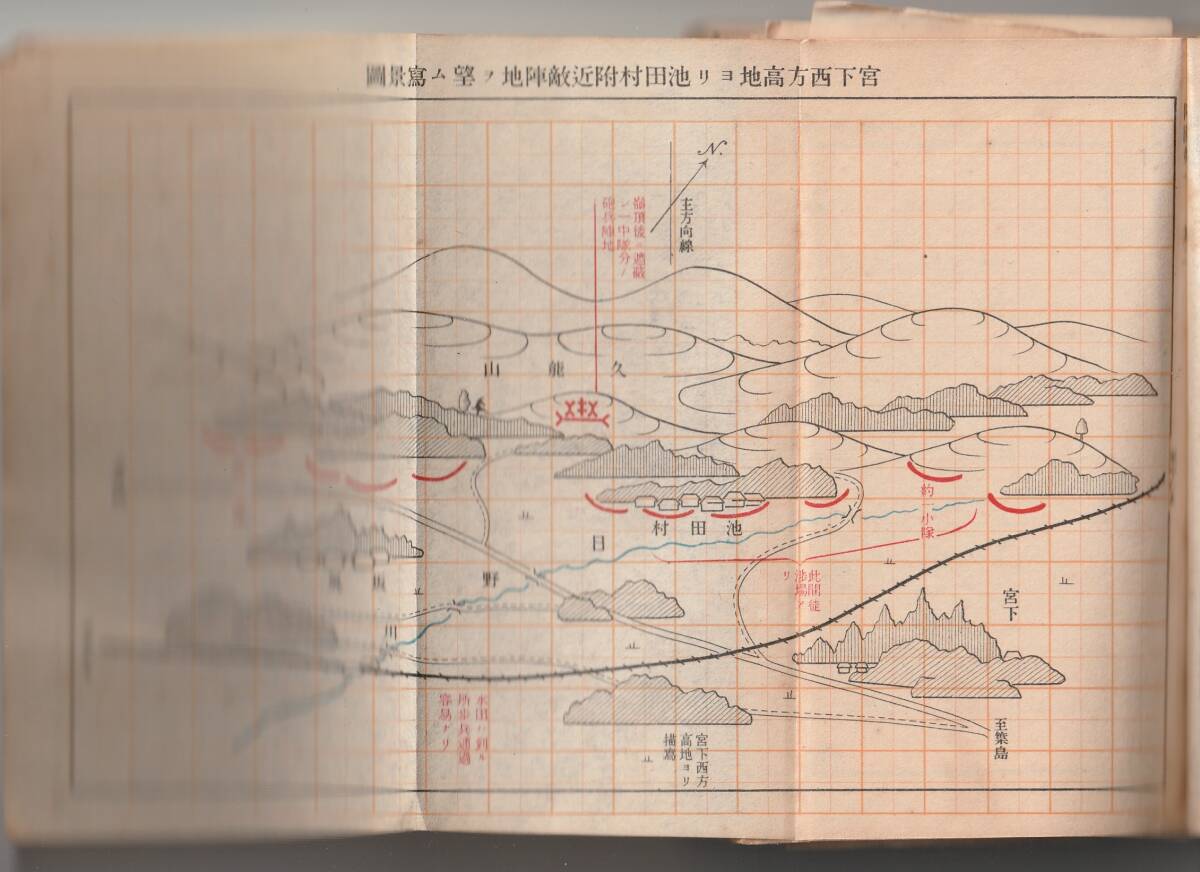 宮下西方高地ヨリ池田村附近敵陣地ヲ望ム寫景圖
N.
主方向線
嶺頂後ニ遮蔽
シ一中隊分ノ
砲兵陣地
久能山
池田村
約一小隊
日野川
此間徒
渉場ア
リ
宮下
水田ハ到ル
所歩兵通過
容易ナリ
宮下西方
高地ヨリ
描寫
至築島